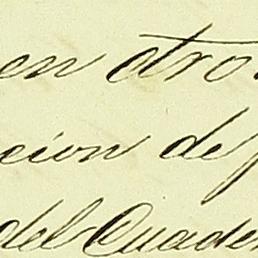 en otro
cion de
del Cuader